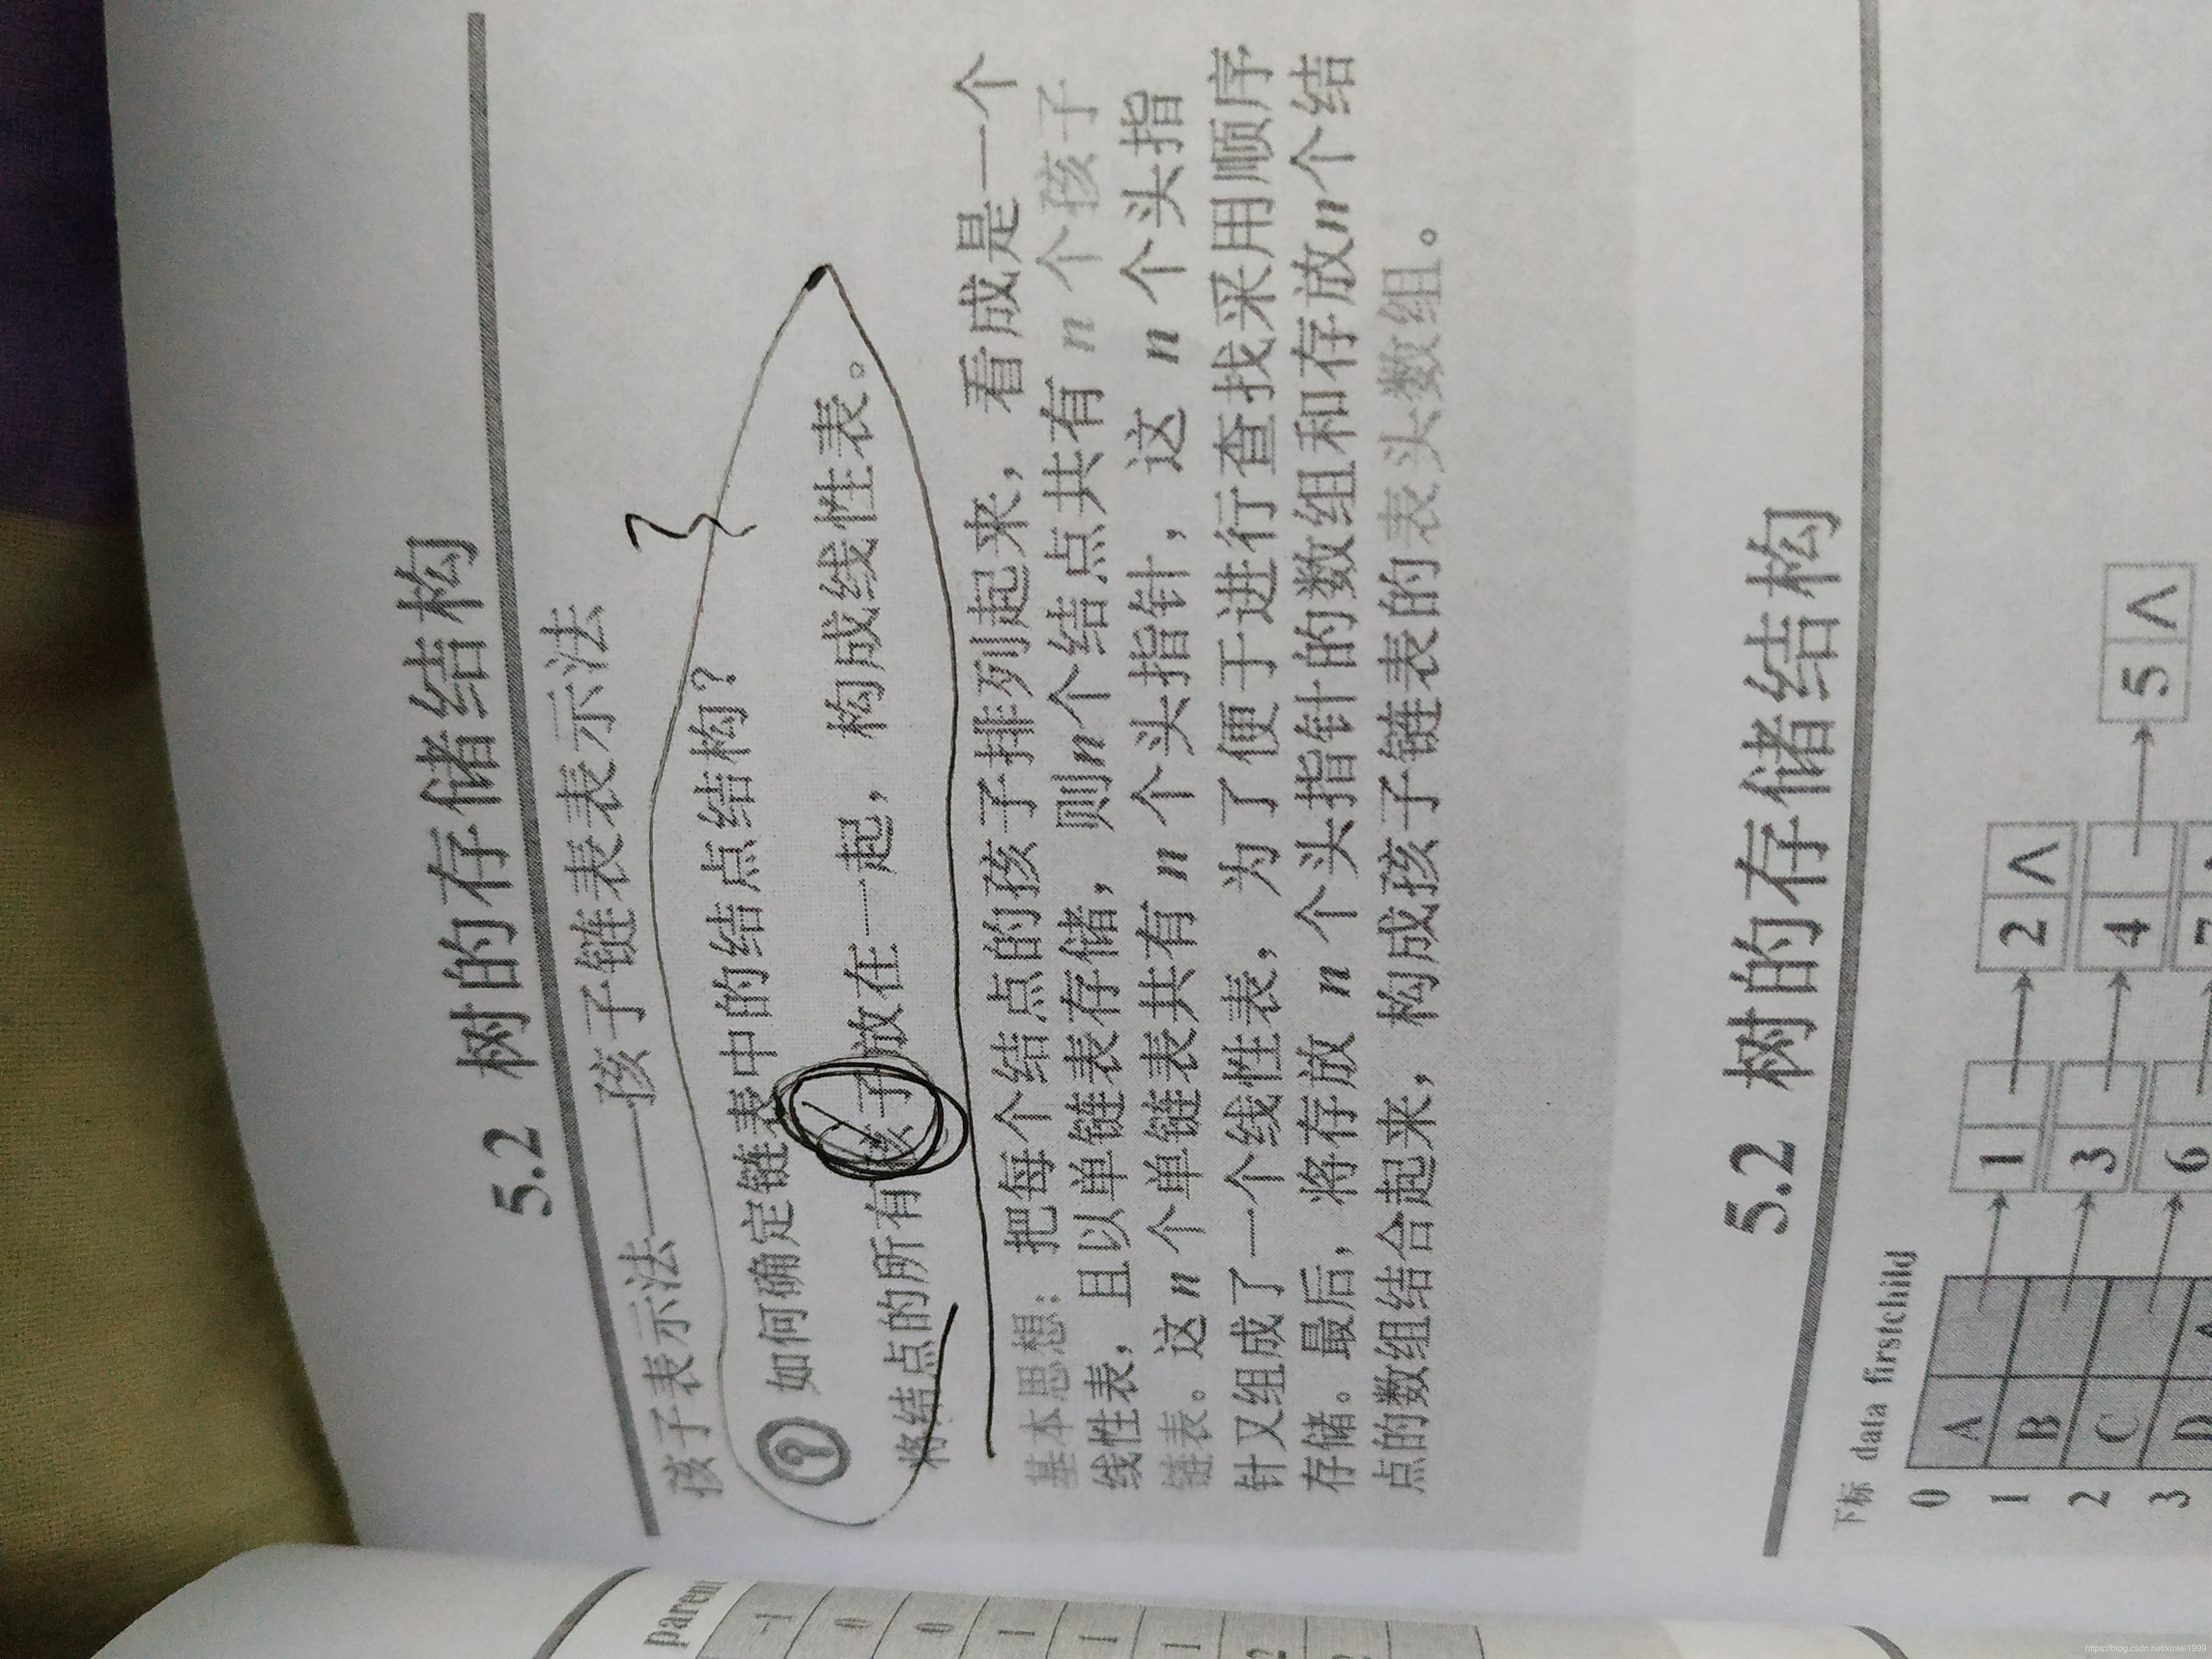 5.2 树的存储结构
孩子表示法——孩子链表表示法
如何确定链表中的结点结构？
将结点的所有孩子放在一起，构成线性表。
基本思想：把每个结点的孩子排列起来，看成是一个
线性表，且以单链表存储，则n个结点共有 n 个孩子
链表。这 n 个单链表共有 n 个头指针，这 n 个头指
针又组成了一个线性表，为了便于进行查找采用顺序
存储。最后，将存放 n 个头指针的数组和存放n个结
点的数组结合起来，构成孩子链表的表头数组。
5.2 树的存储结构
下标 data firstchild
0 A 1 2 ∧
1 B 3 4 5 ∧
2 C 6 7
3 D ∧
-1
0
0
1
1
1
2
https://blog.csdn.net/xinlei1999